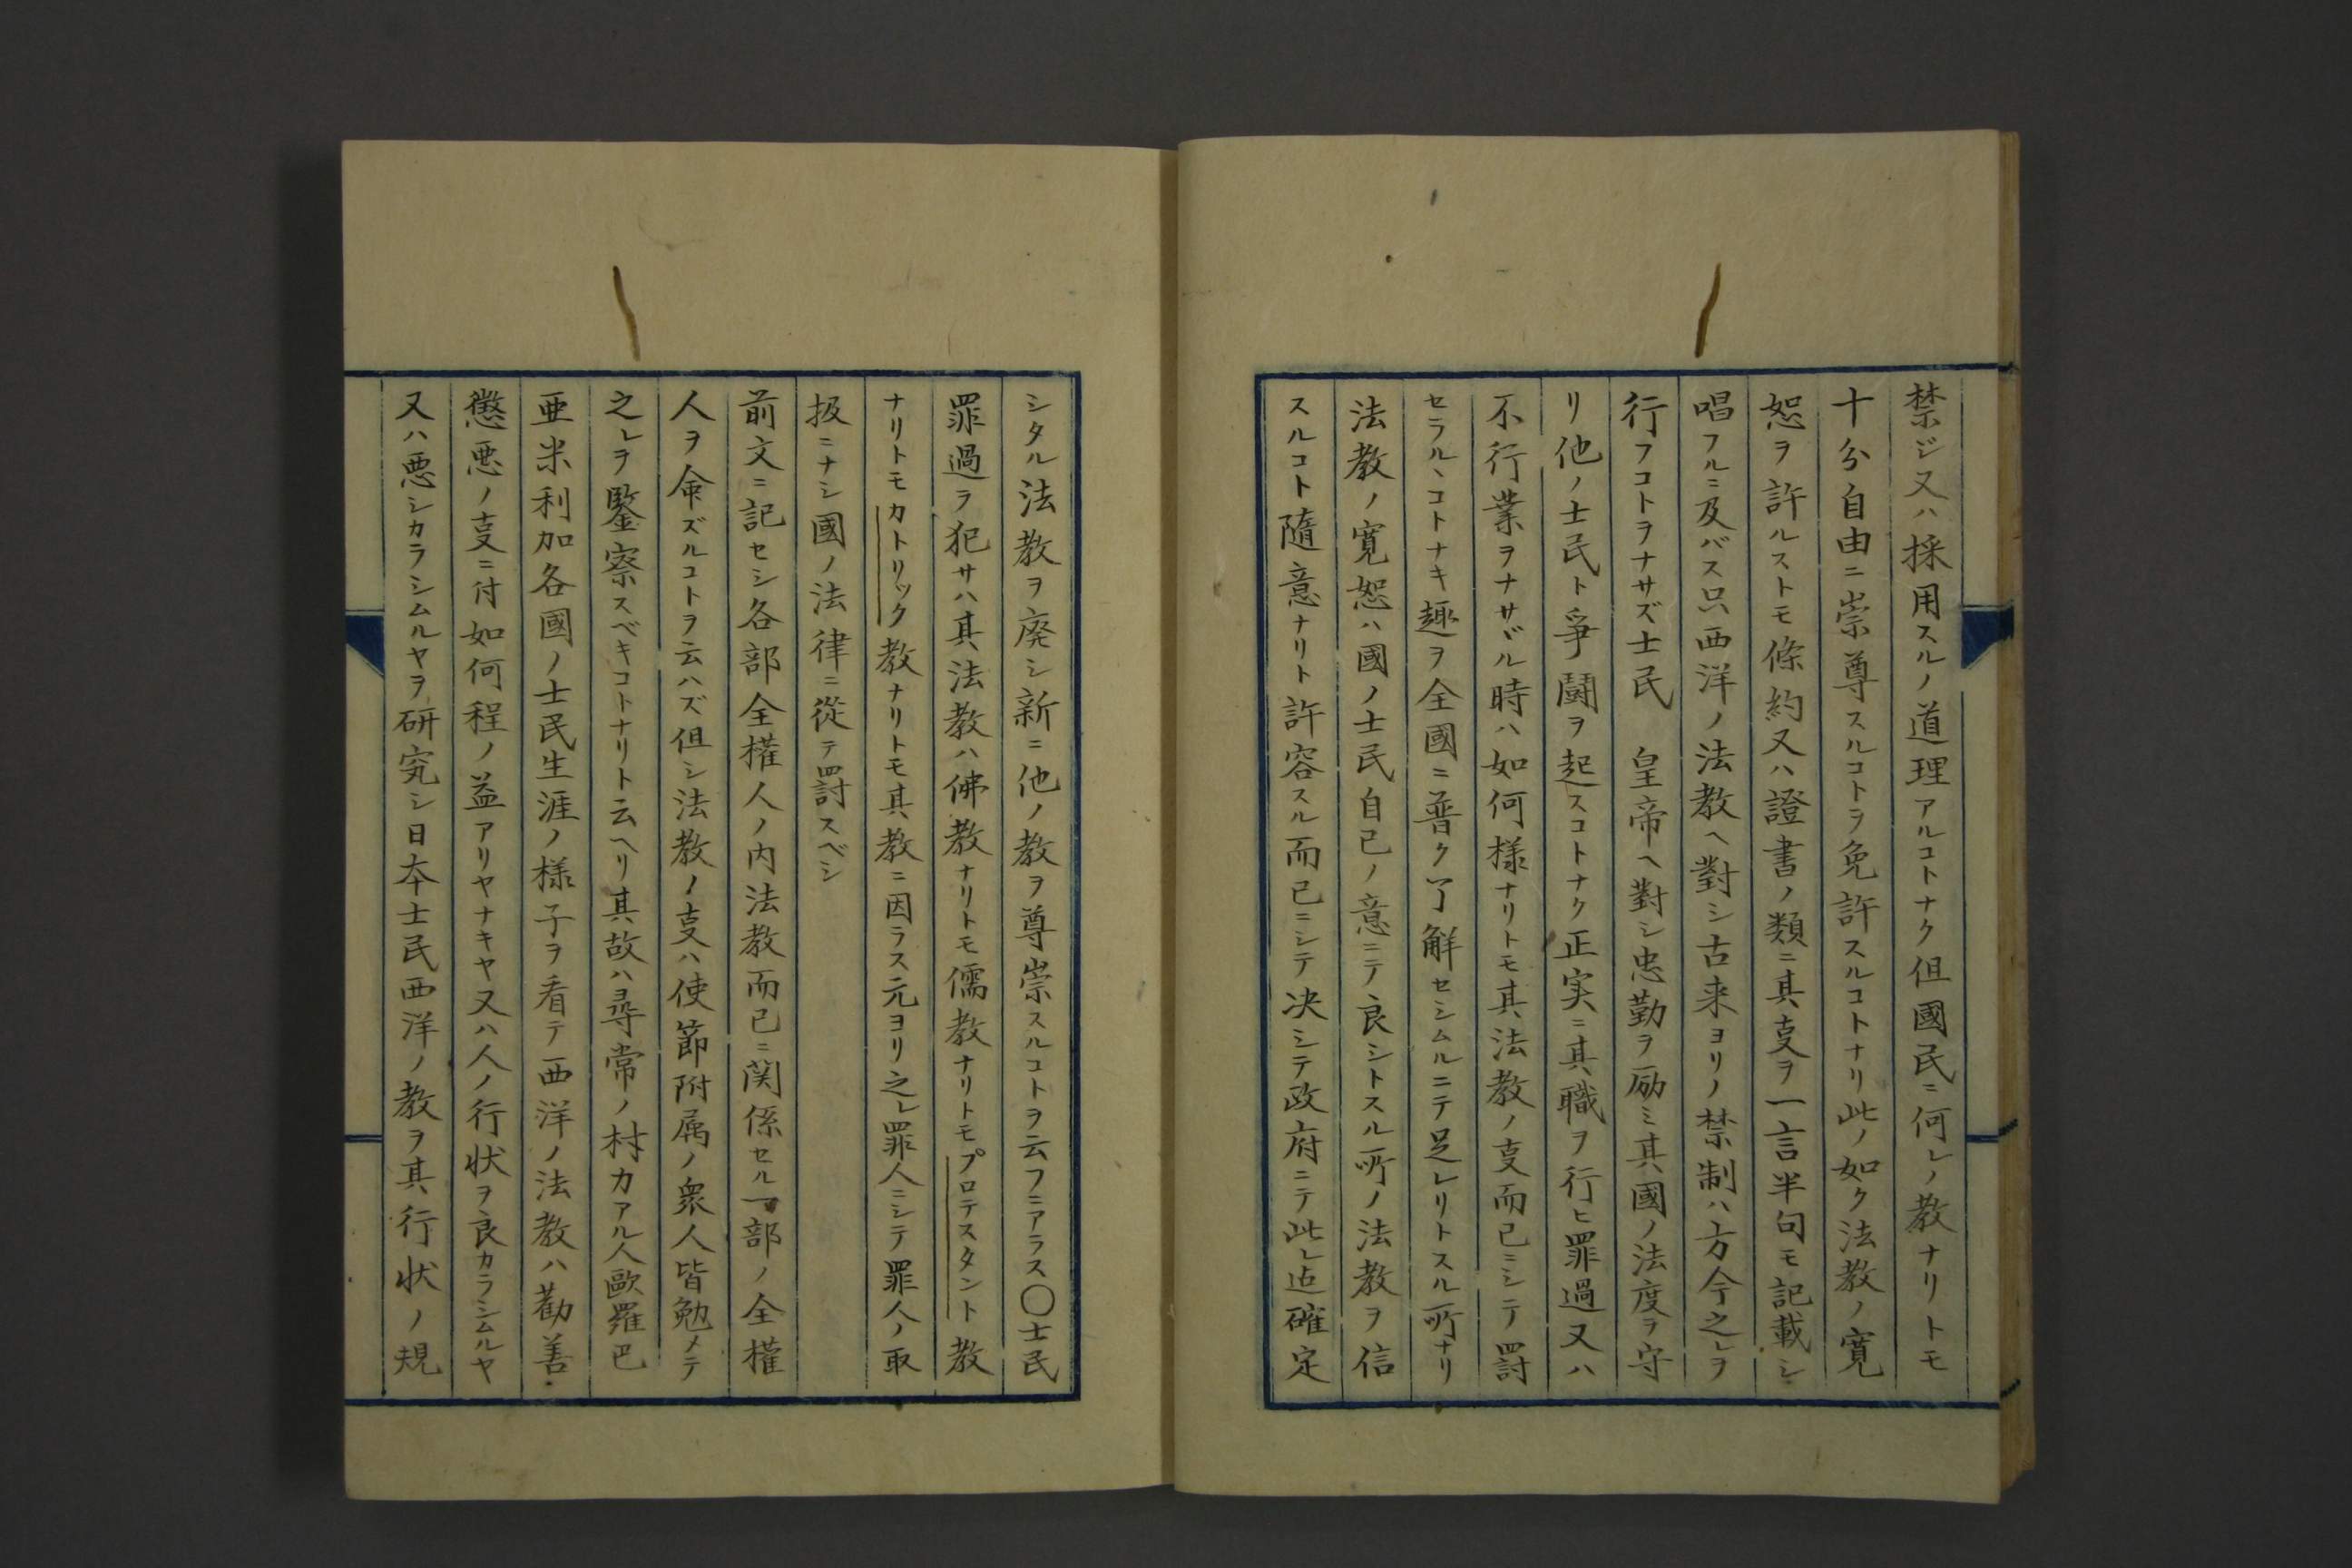 禁ジ又ハ採用スルノ道理アルコトナク但國民ニ何レノ教ナリトモ
十分自由ニ崇尊スルコトヲ免許スルコトナリ此ノ如ク法教ノ寛
恕ヲ許ルストモ條約又ハ證書ノ類ニ其叓ヲ一言半句モ記載シ
唱フルニ及バス只西洋ノ法教ヘ對シ古来ヨリノ禁制ハ方今之レヲ
行フコトヲナサズ士民　皇帝ヘ對シ忠勤ヲ励ミ其國ノ法度ヲ守
リ他ノ士民ト爭闘ヲ起スコトナク正実ニ其職ヲ行ヒ罪過又ハ
不行業ヲナサヾル時ハ如何様ナリトモ其法教ノ叓而已ニシテ罰
セラルヽコトナキ趣ヲ全國ニ普ク了解セシムルニテ足レリトスル所ナリ
法教ノ寛恕ハ國ノ士民自己ノ意ニテ良シトスル所ノ法教ヲ信
スルコト隨意ナリト許容スル而已ニシテ决シテ政府ニテ此レ迠確定
シタル法教ヲ廃シ新ニ他ノ教ヲ尊崇スルコトヲ云フニアラス〇士民
罪過ヲ犯サハ其法教ハ佛教ナリトモ儒教ナリトモプロテスタント教
ナリトモカトリック教ナリトモ其教ニ因ラス元ヨリ之レ罪人ニシテ罪人ノ取
扱ニナシ國ノ法律ニ從テ罰スベシ
前文ニ記セシ各部全權人ノ内法教而已ニ関係セル一部ノ全權
人ヲ命ズルコトヲ云ハズ但シ法教ノ叓ハ使節附属ノ衆人皆勉メテ
之レヲ鑒察スベキコトナリト云ヘリ其故ハ尋常ノ村カアル人歐羅巴
亜米利加各國ノ士民生涯ノ様子ヲ看テ西洋ノ法教ハ勸善
懲悪ノ叓ニ付如何程ノ益アリヤナキヤ又ハ人ノ行状ヲ良カラシムルヤ
又ハ悪シカラシムルヤヲ研究シ日本士民西洋ノ教ヲ其行状ノ規